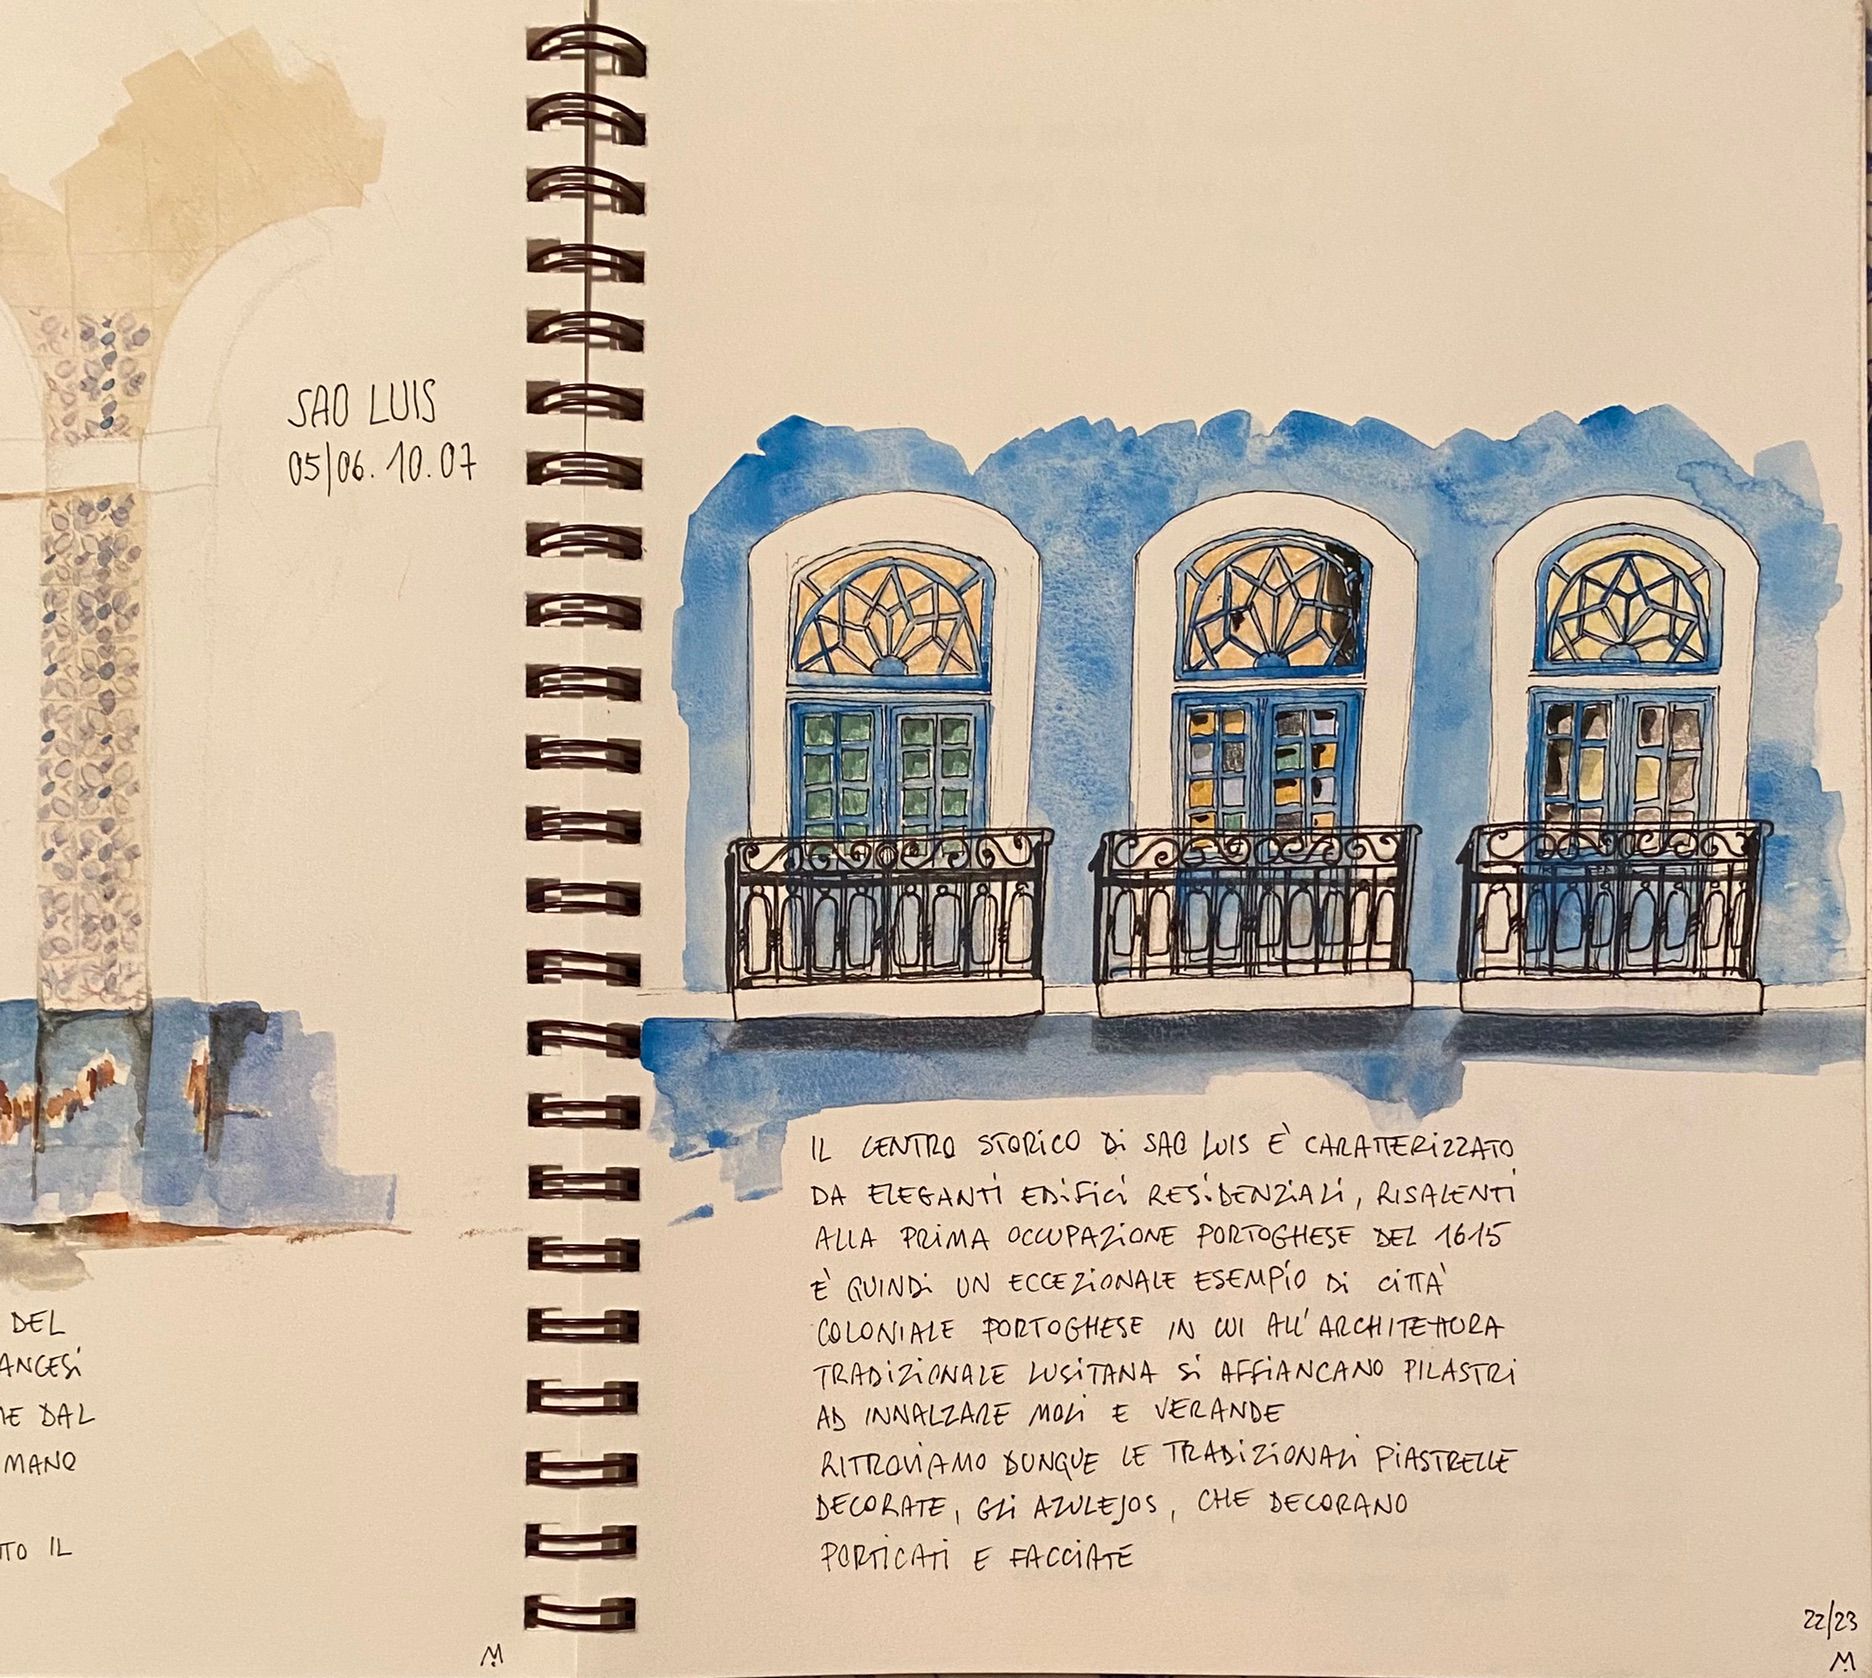 SAO LUIS
05/06.10.07
DEL
ANCESI
DAL
MANO
IL
M
IL CENTRO STORICO DI SAO LUIS È CARATTERIZZATO
DA ELEGANTI EDIFICI RESIDENZIALI, RISALENTI
ALLA PRIMA OCCUPAZIONE PORTOGHESE DEL 1615
È QUINDI UN ECCEZIONALE ESEMPIO DI CITTÀ
COLONIALE PORTOGHESE IN CUI ALL'ARCHITETTURA
TRADIZIONALE LUSITANA SI AFFIANCANO PILASTRI
AD INNALZARE MOLI E VERANDE
RITROVIAMO DUNQUE LE TRADIZIONALI PIASTRELLE
DECORATE, GLI AZULEJOS, CHE DECORANO
PORTICATI E FACCIATE
22/23
M